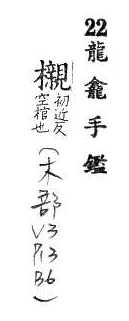 22龍龕手鑑
櫬初近反空棺也(木部V3P13B6)